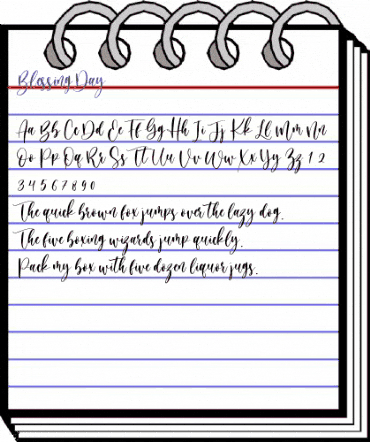 Blessing Day
Aa Bb Cc Dd Ee Ff Gg Hh Ii Jj Kk Ll Mm Nn
Oo Pp Qq Rr Ss Tt Uu Vv Ww Xx Yy Zz 1 2
3 4 5 6 7 8 9 0
The quick brown fox jumps over the lazy dog.
The five boxing wizards jump quickly.
Pack my box with five dozen liquor jugs.